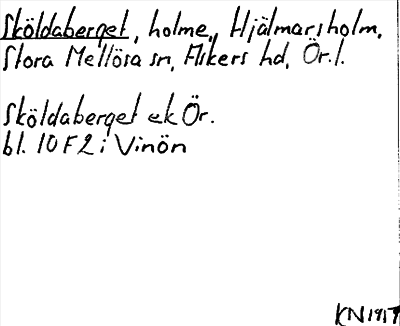 Sköldaberget, holme, Hjälmarsholm,
Stora Mellösa sn, Askers hd, Ör. l.
Sköldaberget ek Ör.
bl. 10 F 2 i Vinön
KN 1917